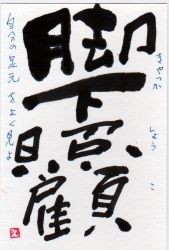 きゃっか　しょう　こ
脚下照顧
自分の足元をよく見よ